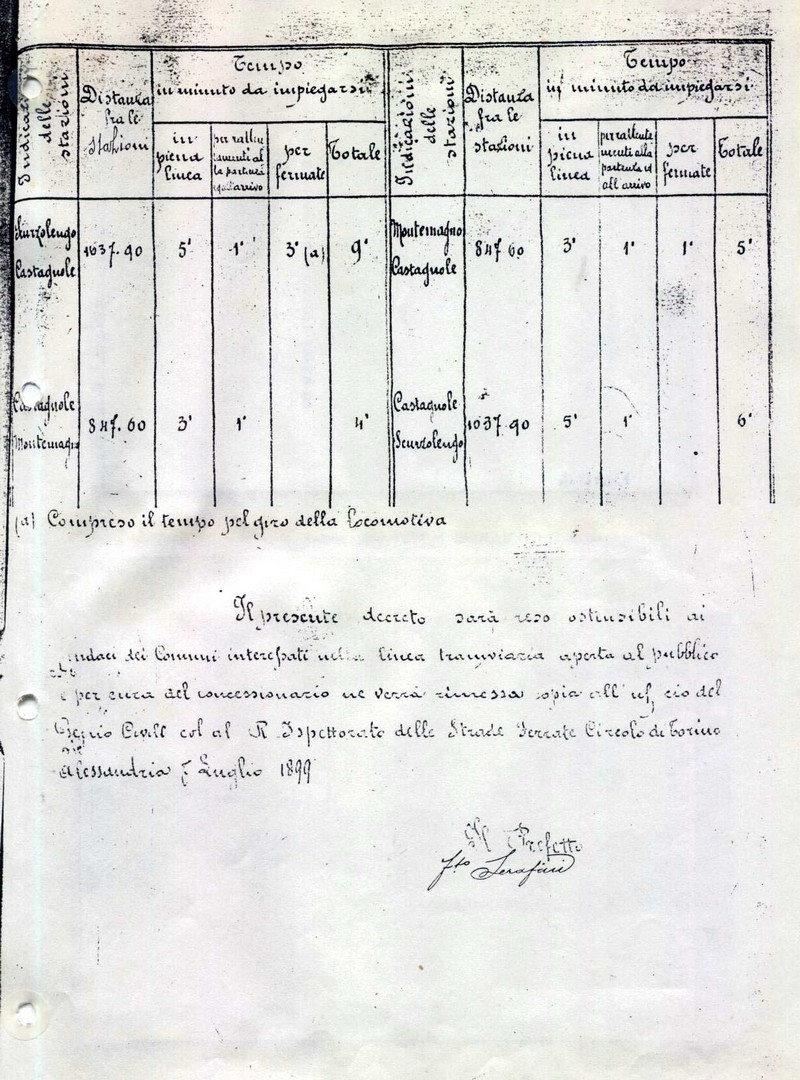 Indicazioni delle stazioni
Distanza fra le stazioni
Tempo
in minuto da impiegarsi
in piena linea
per rallentamenti alla partenza ed all'arrivo
per fermate
Totale
Indicazioni delle stazioni
Distanza fra le stazioni
Tempo
in minuto da impiegarsi
in piena linea
per rallentamenti alla partenza ed all'arrivo
per fermate
Totale
Scurzolengo Castagnole 1637.90 5' 1' 3' (a) 9' Montemagno Castagnole 847 60 3' 1' 1' 5'
Castagnole Montemagno 847.60 3' 1' 4' Castagnole Scurzolengo 1037 90 5' 1' 6'
(a) Compreso il tempo pel giro della locomotiva
Il presente decreto sarà reso ostensibili ai
Sindaci dei Comuni interessati nella linea tramviaria aperta al pubblico
e per cura del concessionario ne verrà rimessa copia all'ufficio del
Genio Civile col al R Ispettorato delle Strade Ferrate Circolo di Torino
Alessandria 7 Luglio 1899
Il Prefetto
Fto Serafini